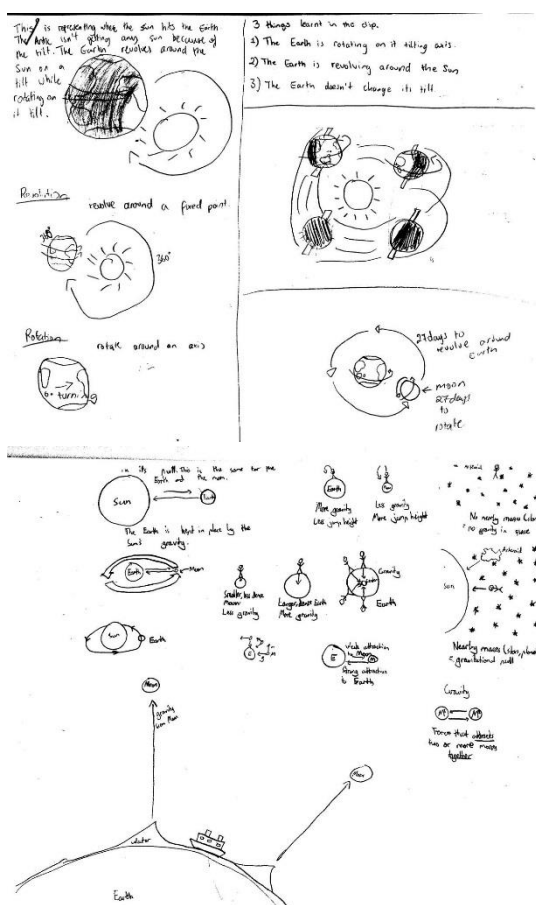 This is representing when the sun hits the Earth
The Artic isn't getting any sun because of
the tilt. The Earth revolves around the
Sun on a
tilt while
rotating on
it tilt.
Revolution
revolve around a fixed point.
360°
Rotation
rotate around on axis
turning
3 things learnt in the clip.
1) The Earth is rotating on it tilting axis.
2) The Earth is revolving around the Sun
3) The Earth doesn't change its tilt
27 days to
revolve around
Earth
moon
27 days
to
rotate
in its pull. This is the same for the
Earth and the moon.
Sun
Earth
The Earth is kept in place by the
Sun's gravity.
Earth
Moon
Sun
Earth
Earth
More gravity
Less jump height
Less gravity
More jump height
Smaller, less dense
Moon
Less gravity
Larger, dense Earth
More gravity
Gravity
Earth
E
E
M
Weak attraction
to Moon
Strong attraction
to Earth
Asteroid
No nearby mass
no gravity in space
Sun
Asteroid
Nearby mass
gravitational pull
Gravity
Force that attracts
two or more masses
together
Moon
gravity
from Moon
Moon
Water
Earth